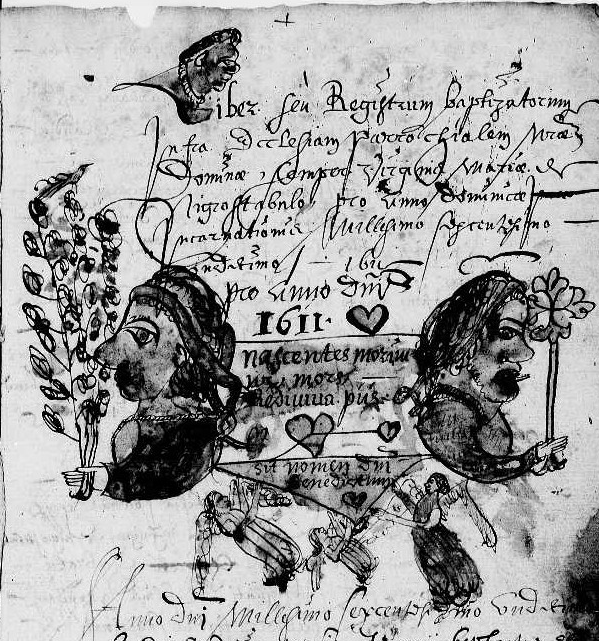 Liber seu Registrum baptizatorum
Infra Ecclesiam parrochialem
Dominae semper Virginis Mariae de
Nigrostabulo, pro anno dominicae
Incarnationis Millesimo sexcentesimo
undecimo 1611
pro anno Dni
1611
nascentes morimur
mors
Rediviva piis
sit nomen Dni
benedictum
Anno dni Millesimo sexcentesimo undecimo